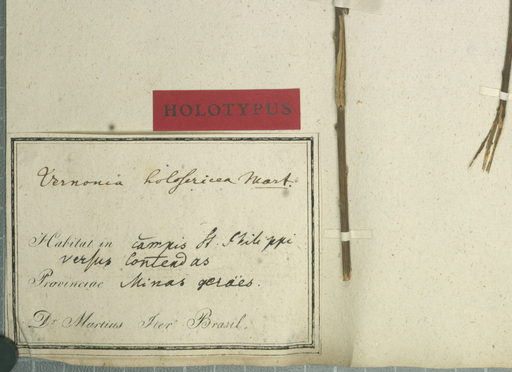 HOLOTYPUS
Vernonia holosericea Mart.
Habitat in campis St. Philippi
versus Contendas
Provinciae Minas geraës.
Dr. Martius Iter Brasil.